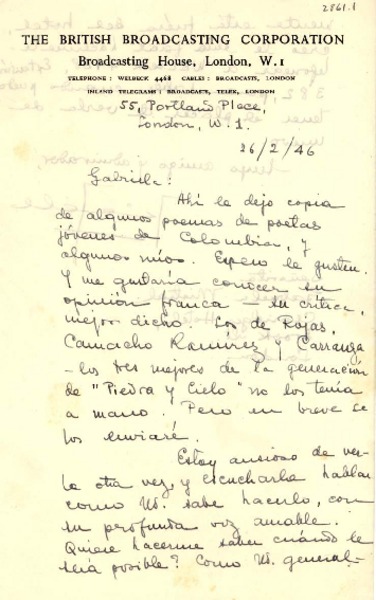 2861.1
THE BRITISH BROADCASTING CORPORATION
Broadcasting House, London, W.1
TELEPHONE : WELBECK 4468 CABLES : BROADCASTS, LONDON
INLAND TELEGRAMS : BROADCASTS, TELEX, LONDON
55, Portland Place,
London, W. 1.
26/2/46
Gabriela:
Ahí le dejo copia
de algunos poemas de poetas
jóvenes de Colombia, y
algunos míos. Espero le gusten.
Y me gustaría conocer su
opinión franca – su crítica,
mejor dicho. Los de Rojas,
Camacho Ramírez y Carranza
– los tres mejores de la generación
de "Piedra y Cielo" no los tenía
a mano. Pero en breve se
los enviaré.
Estoy ansioso de ver-
la otra vez, y escucharla hablar
como Ud. sabe hacerlo, con
su profunda voz amable.
Quiere hacerme saber cuándo le
será posible? Como Ud. general-